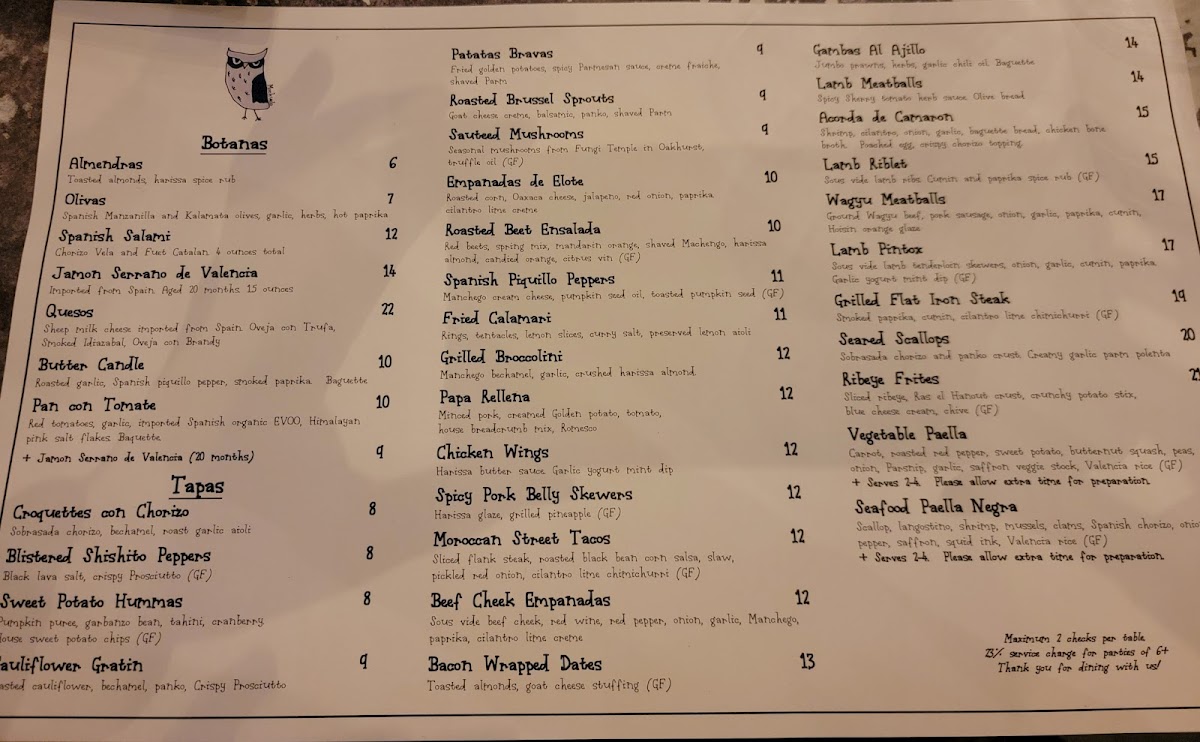 Botanas
Almendras 6
Toasted almonds, harissa spice rub
Olivas 7
Spanish Manzanilla and Kalamata olives, garlic, herbs, hot paprika
Spanish Salami 12
Chorizo Vela and Fuet Catalan 4 ounces total
Jamon Serrano de Valencia 14
Imported from Spain Aged 20 months 1.5 ounces
Quesos 22
Sheep milk cheese imported from Spain Oveja con Trufa,
Smoked Idiazabal, Oveja con Brandy
Butter Candle 10
Roasted garlic, Spanish piquillo pepper, smoked paprika Baguette
Pan con Tomate 10
Red tomatoes, garlic, imported Spanish organic EVOO, Himalayan
pink salt flakes Baguette
+ Jamon Serrano de Valencia (20 months) 9
Tapas
Croquettes con Chorizo 8
Sobrasada chorizo, bechamel, roast garlic aioli
Blistered Shishito Peppers 8
Black lava salt, crispy Prosciutto (GF)
Sweet Potato Hummas 8
Pumpkin puree, garbanzo bean, tahini, cranberry
House sweet potato chips (GF)
Cauliflower Gratin 9
cauliflower, bechamel, panko, Crispy Prosciutto
Patatas Bravas 9
Fried golden potatoes, spicy Parmesan sauce, creme fraiche,
shaved Parm
Roasted Brussel Sprouts 9
Goat cheese creme, balsamic, panko, shaved Parm
Sauteed Mushrooms 9
Seasonal mushrooms from Fungi Temple in Oakhurst,
truffle oil (GF)
Empanadas de Elote 10
Roasted corn, Oaxaca cheese, jalapeno, red onion, paprika
cilantro lime creme
Roasted Beet Ensalada 10
Red beets, spring mix, mandarin orange, shaved Machengo, harissa
almond, candied orange, citrus vin (GF)
Spanish Piquillo Peppers 11
Manchego cream cheese, pumpkin seed oil, toasted pumpkin seed (GF)
Fried Calamari 11
Rings, tentacles, lemon slices, curry salt, preserved lemon aioli
Grilled Broccolini 12
Manchego bechamel, garlic, crushed harissa almond
Papa Rellena 12
Minced pork, creamed Golden potato, tomato,
house breadcrumb mix, Romesco
Chicken Wings 12
Harissa butter sauce Garlic yogurt mint dip
Spicy Pork Belly Skewers 12
Harissa glaze, grilled pineapple (GF)
Moroccan Street Tacos 12
Sliced flank steak, roasted black bean corn salsa, slaw,
pickled red onion, cilantro lime chimichurri (GF)
Beef Cheek Empanadas 12
Sous vide beef cheek, red wine, red pepper, onion, garlic, Manchego,
paprika, cilantro lime creme
Bacon Wrapped Dates 13
Toasted almonds, goat cheese stuffing (GF)
Gambas Al Ajillo 14
Jumbo prawns, herbs, garlic chili oil Baguette
Lamb Meatballs 14
Spicy Sherry tomato herb sauce Olive bread
Acorda de Camaron 15
Shrimp, cilantro, onion, garlic, baguette bread, chicken bone
broth. Poached egg, crispy chorizo topping
Lamb Riblet 15
Sous vide lamb ribs. Cumin and paprika spice rub (GF)
Wagyu Meatballs 17
Ground Wagyu beef, pork sausage, onion, garlic, paprika, cumin,
Hoisin orange glaze
Lamb Pintox 17
Sous vide lamb tenderloin skewers, onion, garlic, cumin, paprika
Garlic yogurt mint dip (GF)
Grilled Flat Iron Steak 19
Smoked paprika, cumin, cilantro lime chimichurri (GF)
Seared Scallops 20
Sobrasada chorizo and panko crust. Creamy garlic parm polenta
Ribeye Frites
Sliced ribeye, Ras el Hanout crust, crunchy potato stix,
blue cheese cream, chive (GF)
Vegetable Paella
Carrot, roasted red pepper, sweet potato, butternut squash, peas,
onion, Parsnip, garlic, saffron veggie stock, Valencia rice (GF)
+ Serves 2-4. Please allow extra time for preparation
Seafood Paella Negra
Scallop, langostino, shrimp, mussels, clams, Spanish chorizo,
pepper, saffron, squid ink, Valencia rice (GF)
+ Serves 2-4. Please allow extra time for preparation
Maximum 2 checks per table
23% service charge for parties of 6+
Thank you for dining with us!